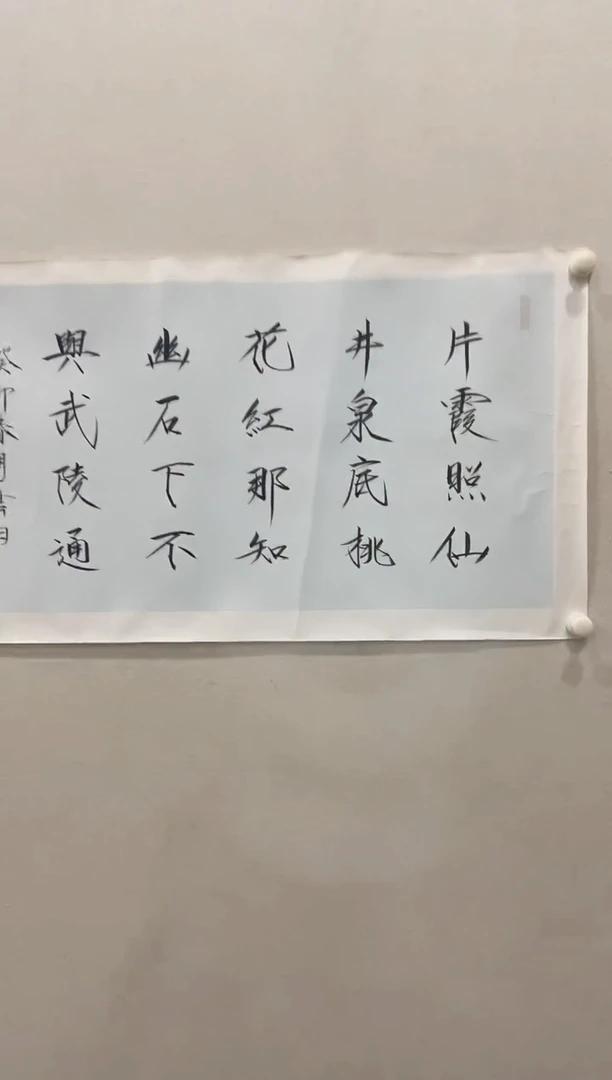 片霞照仙
井泉底桃
花紅那知
幽石下不
與武陵通
癸卯春月